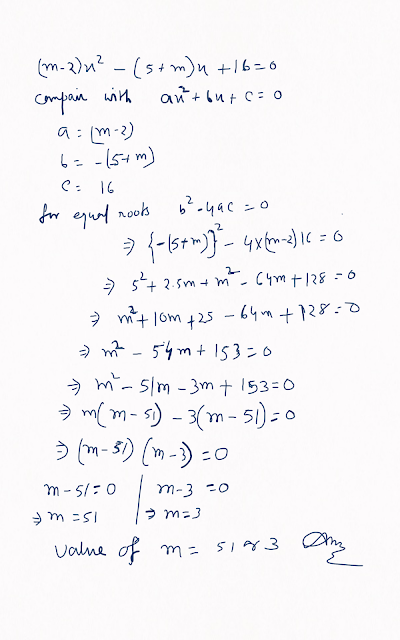 (m-2)x² - (5+m)x + 16 = 0
compair with ax² + bx + c = 0
a = (m-2)
b = -(5+m)
c = 16
for equal roots b² - 4ac = 0
⇒ {-(5+m)}² - 4×(m-2)16 = 0
⇒ 5² + 2.5m + m² - 64m + 128 = 0
⇒ m² + 10m + 25 - 64m + 128 = 0
⇒ m² - 54m + 153 = 0
⇒ m² - 51m - 3m + 153 = 0
⇒ m(m-51) - 3(m-51) = 0
⇒ (m-51) (m-3) = 0
m-51=0 | m-3 = 0
⇒ m = 51 | ⇒ m=3
value of m = 51 or 3 Ans